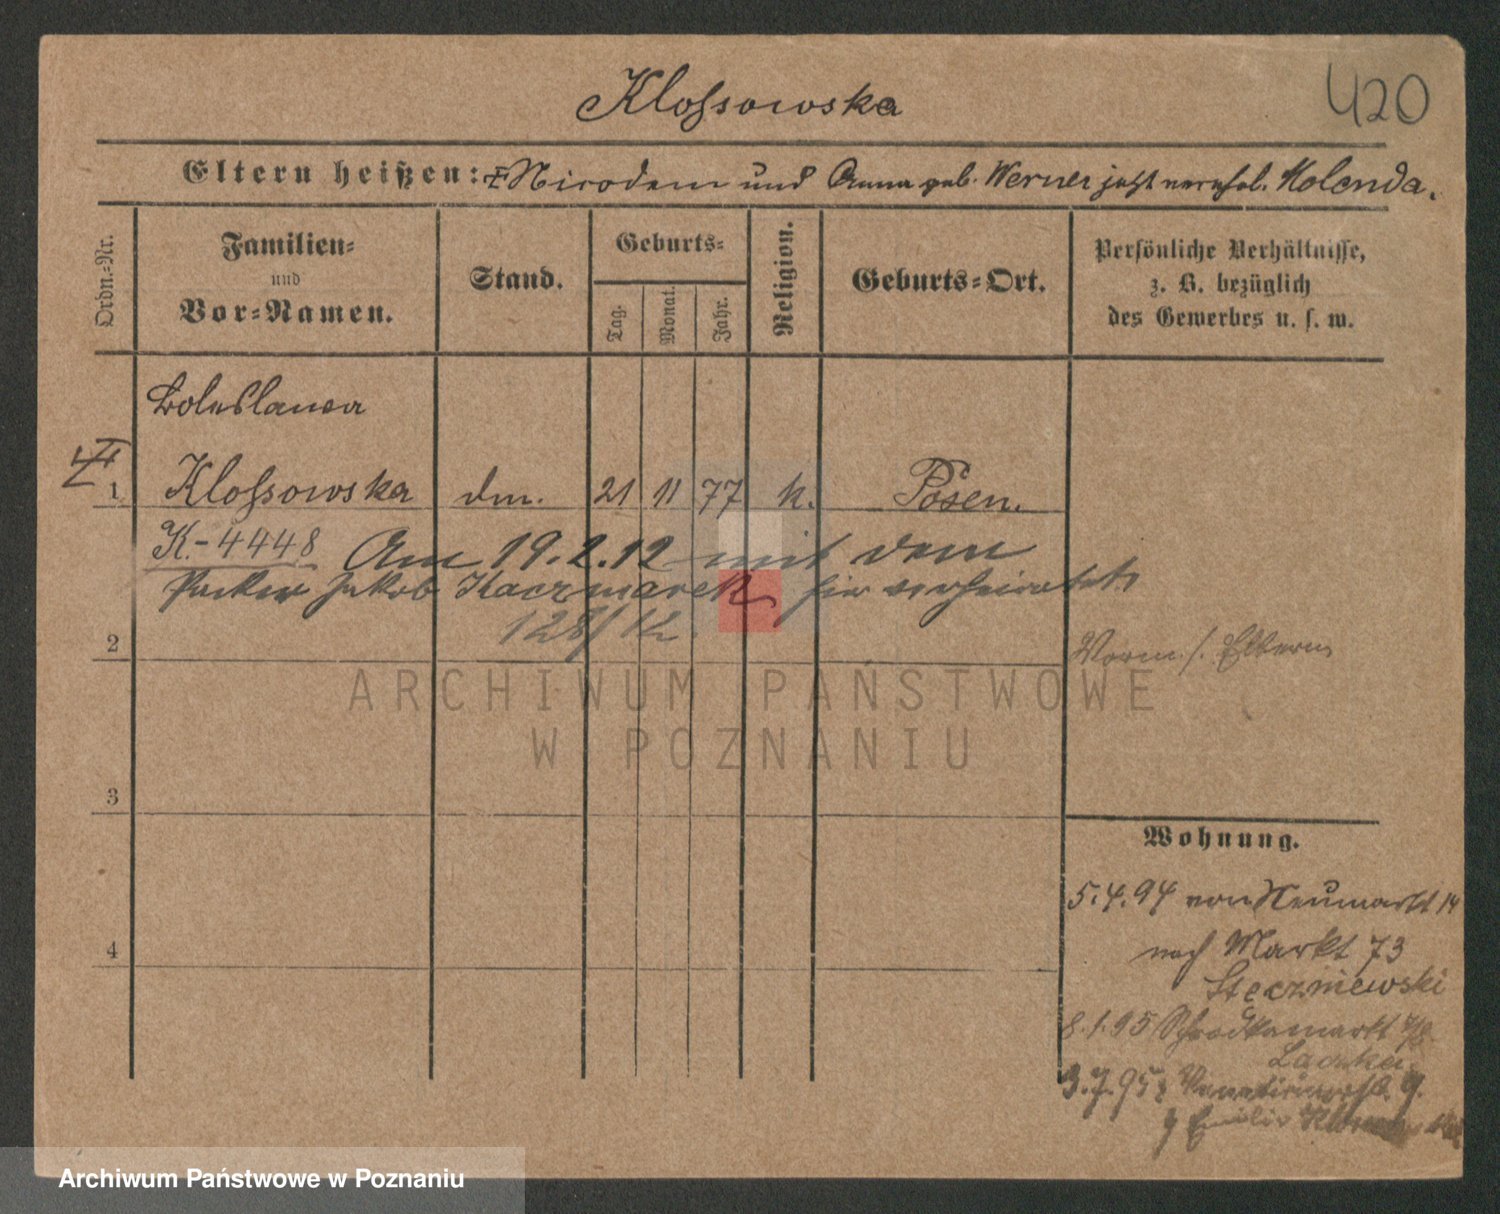 Klossowska
420
Eltern heißen: Nicodem und Anna geb. Werner jetzt verehel. Kolenda.
Ordn.-Nr.
Familien-
und
Vor-Namen.
Stand.
Geburts-
Tag.
Monat.
Jahr.
Religion.
Geburts-Ort.
Persönliche Verhältnisse,
z. B. bezüglich
des Gewerbes u. s. w.
Boleslawa
1 Klossowska dm. 21 11 77 k. Posen.
K.-4448 Am 19.2.12 mit dem
Jakob Kaczmarek hier verheiratet.
128/12.
2
Vorm. /. Eltern
3
4
Wohnung.
5.4.94 von Neumarkt 14
nach Markt 73
Steczniewski
8.1.95 Schrodkamarkt
3.7.95
Emilie
ARCHIWUM PAŃSTWOWE
W POZNANIU
Archiwum Państwowe w Poznaniu